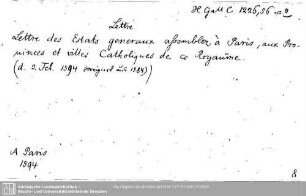 H Gall C 1226,36
Lettre
Lettre des Estats generaux assemblez à Paris, aux Pro-
vinces et villes Catholiques de ce Royaume.
(d. 2. Fel. 1594
A Paris
1594
8
Sächsische Landesbibliothek -
Staats- und Universitätsbibliothek Dresden